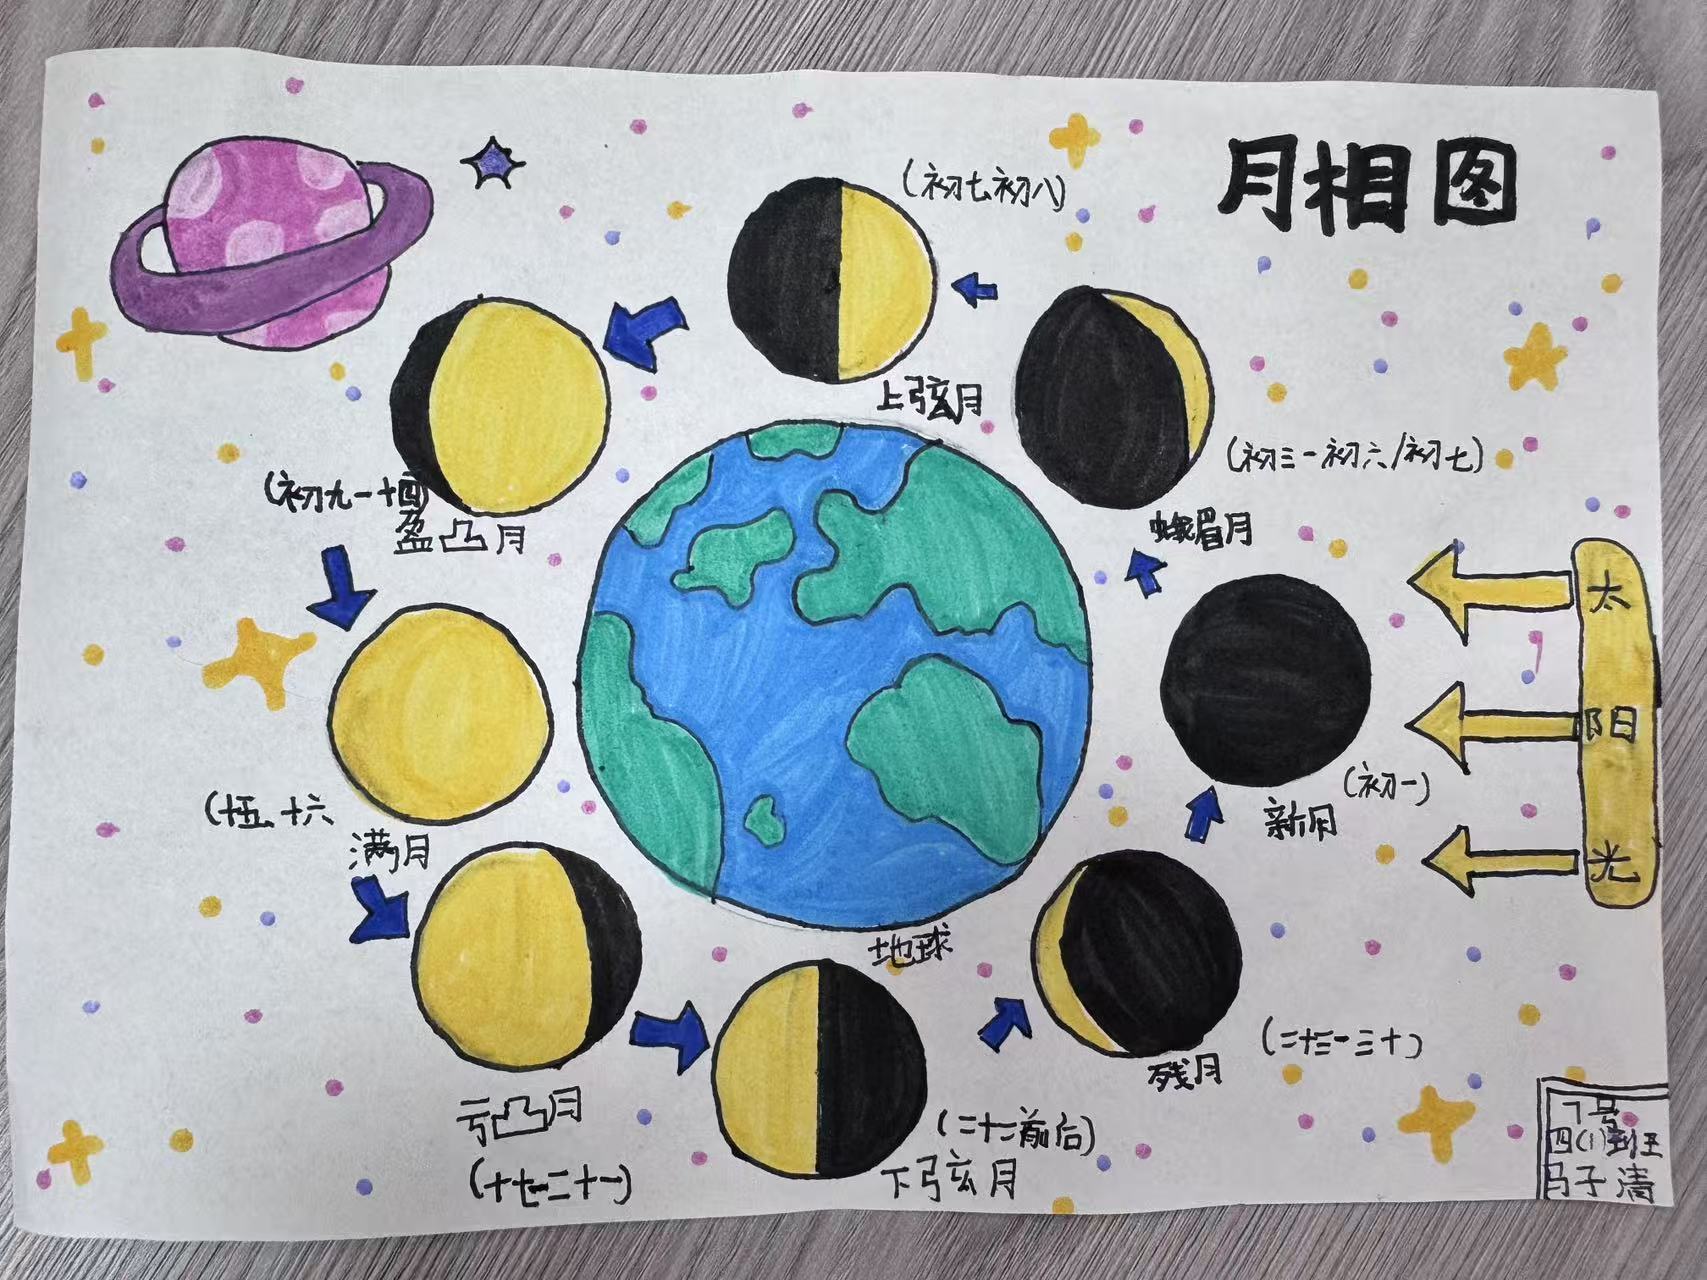 月相图
(初七初八)
上弦月
(初三一初六/初七)
蛾眉月
(初九一十四)
盈凸月
太
阳
光
(初一)
新月
(十五、十六
满月
地球
(二十三一三十)
残月
亏凸月
(十七一二十一)
(二十二前后)
下弦月
7号
四(1)班
马子清